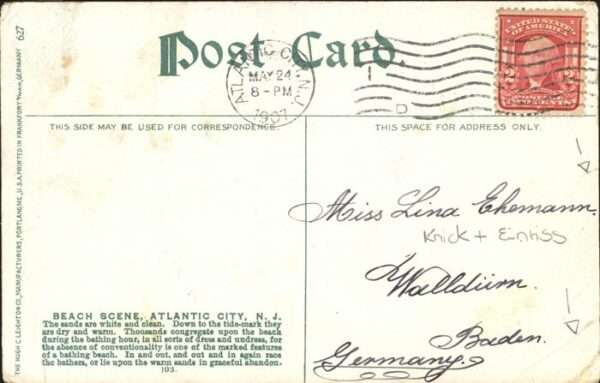 Post Card.
ATLANTIC CITY, N.J.
MAY 24
8 - PM
1907
D
UNITED STATES
OF AMERICA
2 2
THIS SIDE MAY BE USED FOR CORRESPONDENCE
THIS SPACE FOR ADDRESS ONLY.
Miss Lina Ehemann.
Knick + Einriss
Walldürn.
Baden.
Germany.
BEACH SCENE, ATLANTIC CITY, N. J.
The sands are white and clean. Down to the tide-mark they
are dry and warm. Thousands congregate upon the beach
during the bathing hour, in all sorts of dress and undress, for
the absence of conventionality is one of the marked features
of a bathing beach. In and out, and out and in again race
the bathers, or lie upon the warm sands in graceful abandon.
103.
THE HUGH C. LEIGHTON CO., MANUFACTURERS, PORTLAND, ME., U.S.A. PRINTED IN FRANKFORT ᴬ/ᴍᴀɪɴ, GERMANY 627